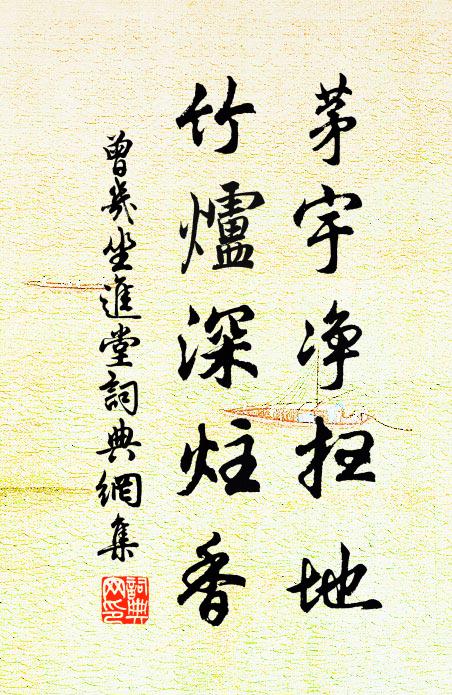 茅宇净扫地
竹爐深炷香
曾幾坐進堂詞典網集
詞典网印